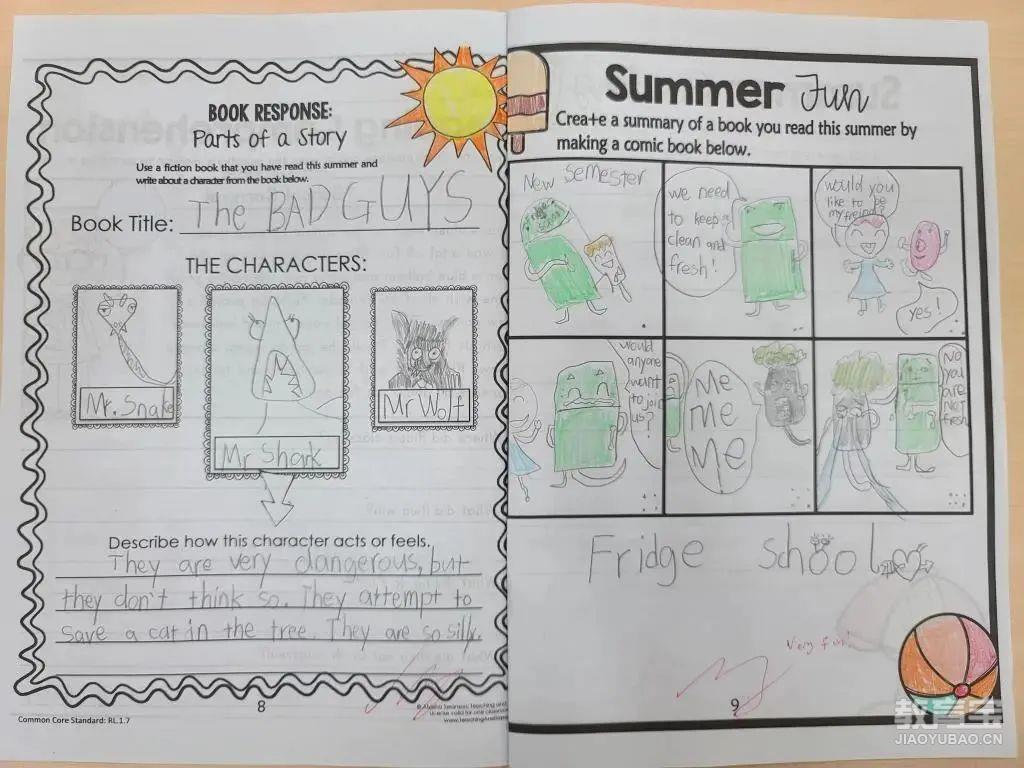 BOOK RESPONSE:
Parts of a Story
Use a fiction book that you have read this summer and
write about a character from the book below.
Book Title: The BAD GUYS
THE CHARACTERS:
Mr. Snake
Mr Shark
Mr Wolf
Describe how this character acts or feels.
They are very dangerous, but
they don't think so. They attempt to
save a cat in the tree. They are so silly.
8
Common Core Standard: RL.1.7
Summer Fun
Create a summary of a book you read this summer by
making a comic book below.
New semester
we need
to keep
clean and
fresh!
would you
like to be
my freind?
yes!
would
anyone
want
to join
us?
Me
me
me
Me
No
you
are
not
fresh
Fridge school
Very fun!
9
教育宝
JIAOYUBAO.CN